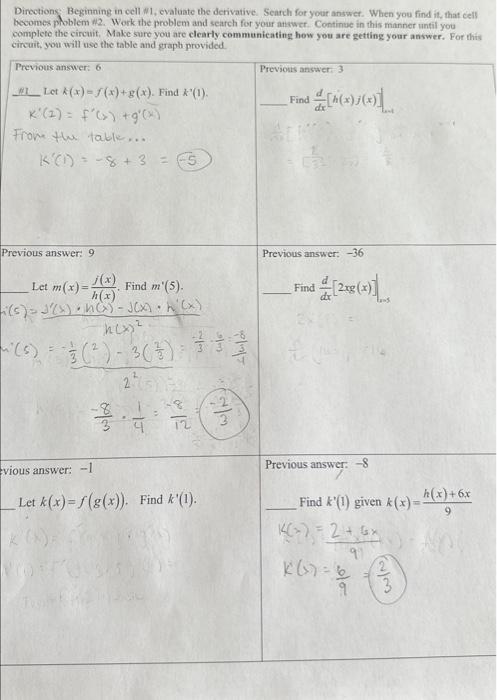 Directions: Beginning in cell #1, evaluate the derivative. Search for your answer. When you find it, that cell
becomes problem #2. Work the problem and search for your answer. Continue in this manner until you
complete the circuit. Make sure you are clearly communicating how you are getting your answer. For this
circuit, you will use the table and graph provided.
Previous answer: 6
#1 Let k(x) = f(x) + g(x). Find k'(1).
K'(2) = f'(x) + g'(x)
From the table...
K'(1) = -8 + 3 = -5
Previous answer: 3
Find d/dx [h(x) j(x)]
Previous answer: 9
Let m(x) = j(x)/h(x). Find m'(5).
m'(5) = J'(x) • h(x) - J(x) • h'(x)
h(x)²
m'(5) = -1/3 (2) - 3(2/3) = -2/3 - 6/3 = -8/3 / 4
2²
-8/3 · 1/4 = -8/12 = -2/3
Previous answer: -36
Find d/dx [2xg(x)] x=5
evious answer: -1
Let k(x) = f(g(x)). Find k'(1).
Previous answer: -8
Find k'(1) given k(x) = h(x)+6x / 9
K(x) = 2 + 6x / 9
K'(x) = 6/9 = 2/3